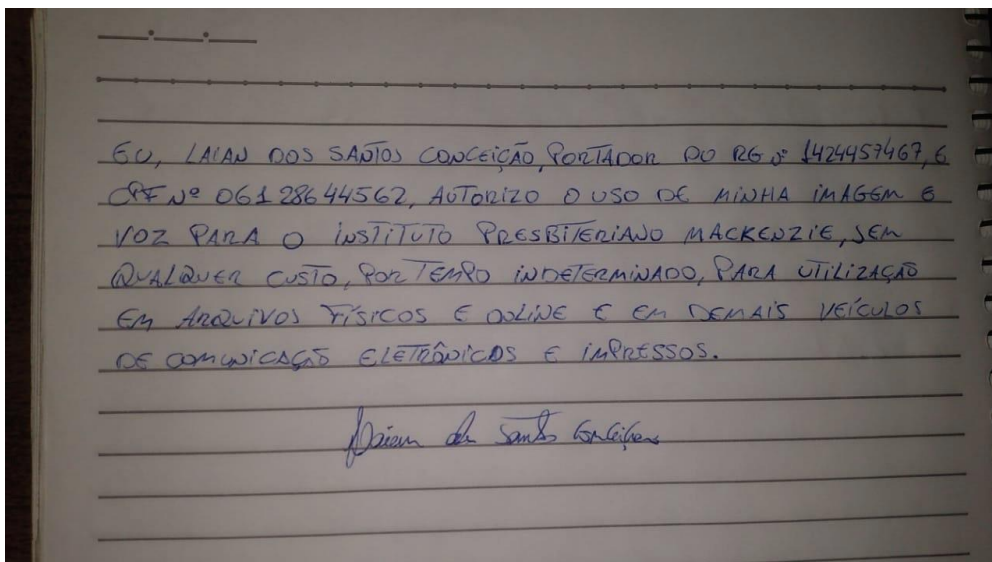 EU, LAIAN DOS SANTOS CONCEIÇÃO, PORTADOR DO RG Nº 1424457467, E
CPF Nº 06128644562, AUTORIZO O USO DE MINHA IMAGEM E
VOZ PARA O INSTITUTO PRESBITERIANO MACKENZIE, SEM
QUALQUER CUSTO, POR TEMPO INDETERMINADO, PARA UTILIZAÇÃO
EM ARQUIVOS FÍSICOS E ONLINE E EM DEMAIS VEÍCULOS
DE COMUNICAÇÃO ELETRÔNICOS E IMPRESSOS.
Laian dos Santos Conceição